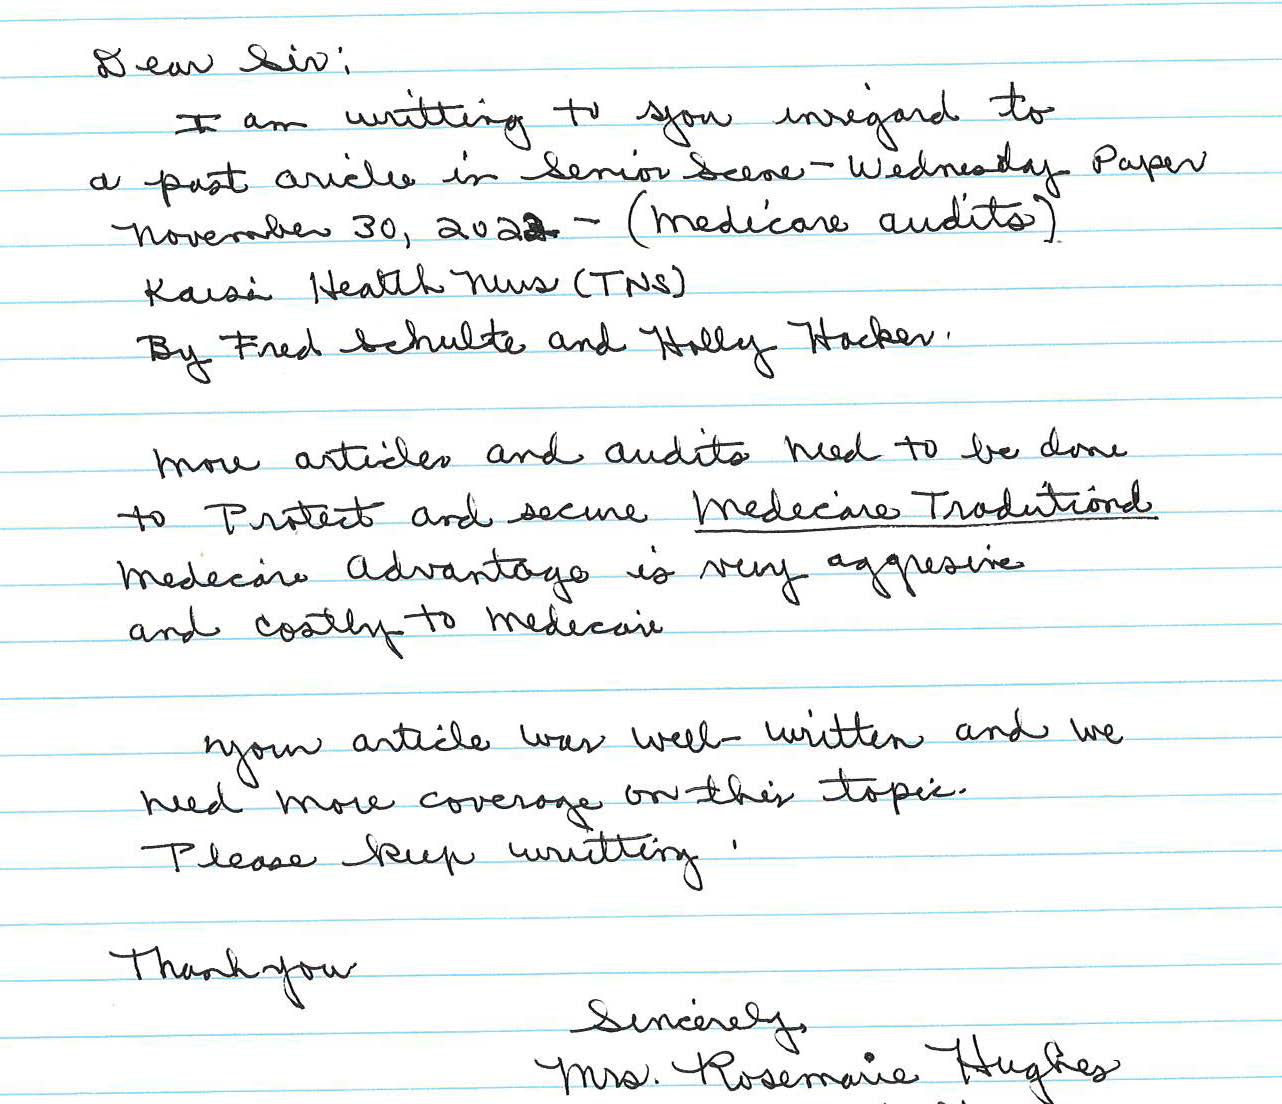 Dear Sir:
I am writting to you inregard to
a past aricle in Senior Scene - Wednesday Paper
November 30, 2022 - (Medicare audits)
Kaisi Health News (TNS)
By Fred Schulte and Holly Hacker.
More articles and audits need to be done
to Protect and secure Medecare Traditional
Medecare Advantage is very aggresive
and costly to Medecare
Your article was well-written and we
need more coverage on this topic.
Please keep writting.
Thank you
Sincerely,
Mrs. Rosemarie Hughes